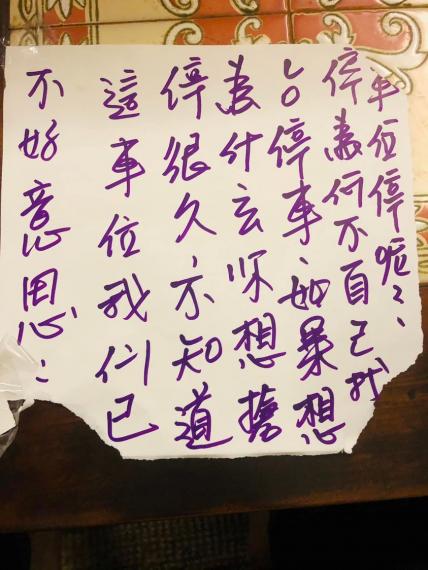 不好意思：
這車位我们已
停很久，不知道
為什么你想
占停車、如果想
停為何不自己找
車位停呢？、